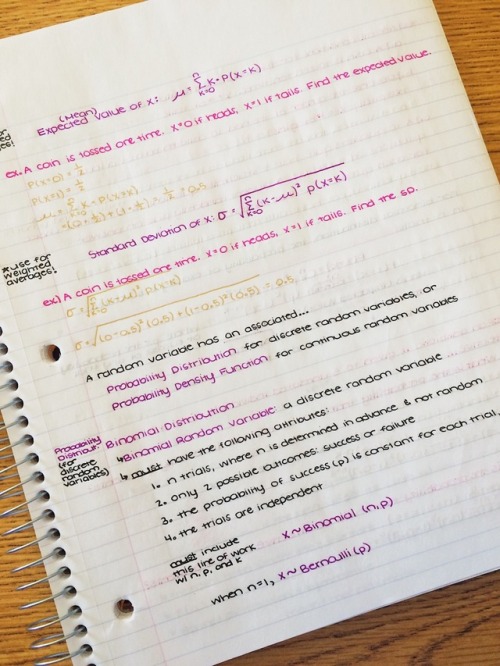 (Mean)
Expected Value of X: μ = Σ k · P(X=k)
n
k=0
ex. A coin is tossed one time. X=0 if heads, X=1 if tails. Find the expected value.
P(X=0) = 1/2
P(X=1) = 1/2
= (0 · 1/2) + (1 · 1/2) = 1/2 = 0.5
Standard Deviation of X: σ = √ Σ (k-μ)² P(X=k)
n
k=0
*use for
weighted
averages!
ex) A coin is tossed one time. X=0 if heads, X=1 if tails. Find the SD.
σ = √ Σ (k-μ)² P(X=k)
σ = √ (0-0.5)² (0.5) + (1-0.5)² (0.5) = 0.5
A random variable has an associated...
Probability Distribution for discrete random variables, or
Probability Density Function for continuous random variables
Probability
(for
discrete
random
variables)
Binomial Distribution
↳ Binomial Random Variable: a discrete random variable ...
↳ must have the following attributes:
1. n trials, where n is determined in advance & not random
2. only 2 possible outcomes: success or failure
3. the probability of success (p) is constant for each trial
4. the trials are independent
must include
this line of work
w/ n, p, and k
X ~ Binomial (n, p)
when n=1, X ~ Bernoulli (p)